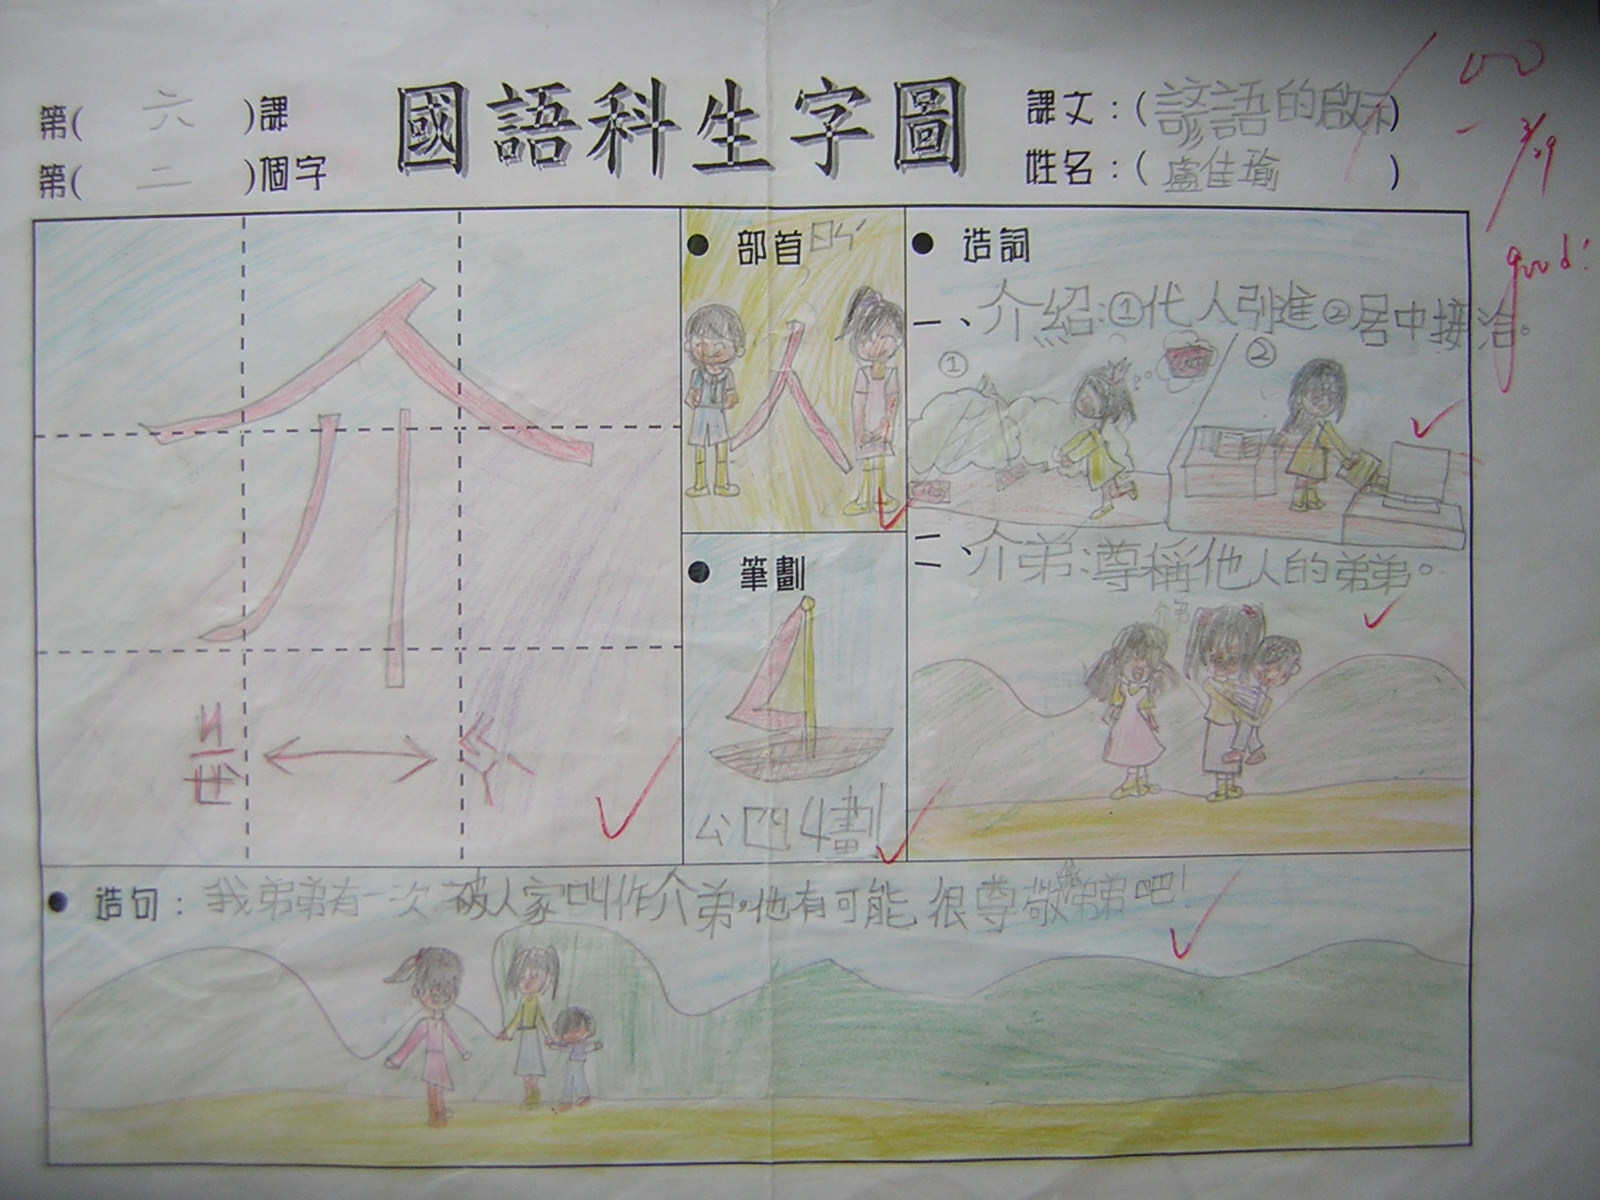 第(六)課
第(二)個字
國語科生字圖
課文：(諺語的啟示)
姓名：(盧佳瑜)
3/29
good!
介
部首
人
筆劃
4劃
造詞
一、介紹：①代人引進②居中接洽。
①
②
二、介弟：尊稱他人的弟弟。
造句：我弟弟有一次被人家叫作介弟，他有可能很尊敬弟弟吧！